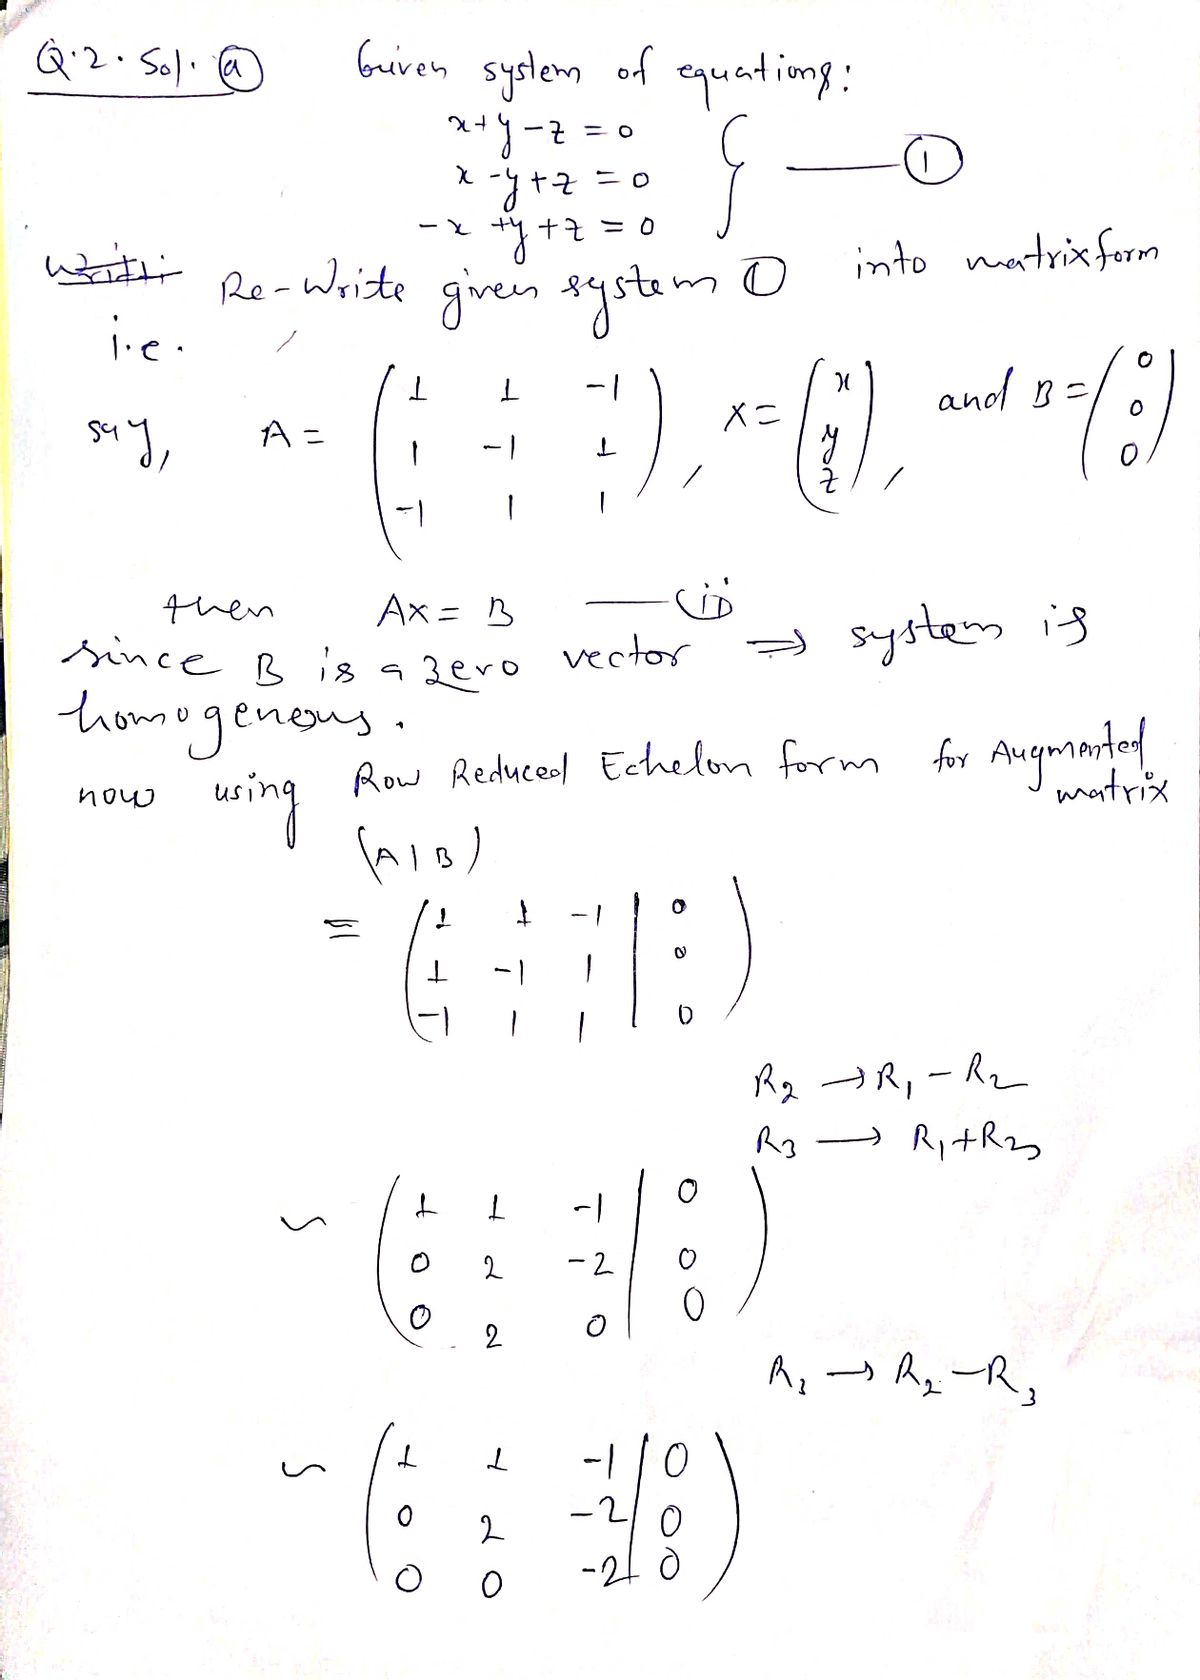 Q.2. Sol. (a) Given system of equations:
x+y-z = 0
x-y+z = 0 } —— (1)
-x+y+z = 0
Re-Write given system (1) into matrix form
i.e.
say, A = ( 1 1 -1 ; 1 -1 1 ; -1 1 1 ), X = ( x ; y ; z ), and B = ( 0 ; 0 ; 0 )
then AX = B —— (ii)
since B is a zero vector ⇒ system is
homogeneous.
now using Row Reduced Echelon form for Augmented
matrix
(A | B)
≡ ( 1 1 -1 | 0
1 -1 1 | 0
-1 1 1 | 0 )
R2 → R1 - R2
R3 → R1 + R3
~ ( 1 1 -1 | 0
0 2 -2 | 0
0 2 0 | 0 )
R3 → R2 - R3
~ ( 1 1 -1 | 0
0 2 -2 | 0
0 0 -2 | 0 )